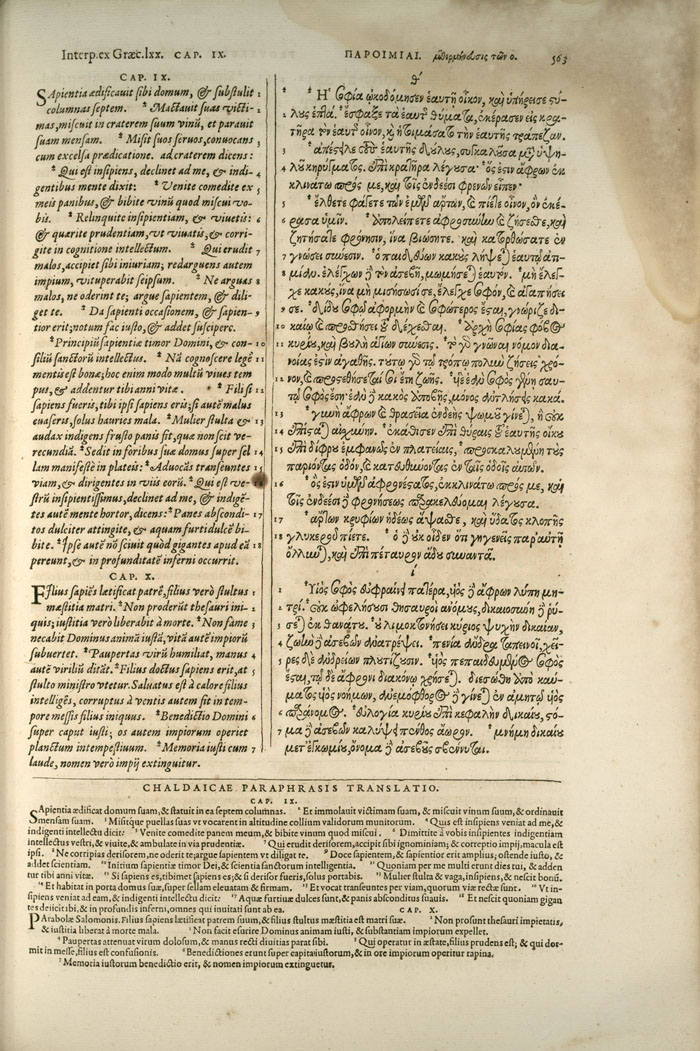 Interp. ex Græc. lxx. CAP. IX.
ΠΑΡΟΙΜΙΑΙ. 563
CAP. IX.
SApientia ædificauit sibi domum, & substulit
columnas septem. ² Mactauit suas victi-
mas, miscuit in craterem suum vinū, et parauit
suam mensam. ³ Misit suos seruos, conuocans
cum excelsa prædicatione. ad craterem dicens:
⁴ Qui est insipiens, declinet ad me, & indi-
gentibus mente dixit: ⁵ Venite comedite ex
meis panibus, & bibite vinū quod miscui vo-
bis. ⁶ Relinquite insipientiam, & viuetis:
& quærite prudentiam, vt viuatis, & corri-
gite in cognitione intellectum. ⁷ Qui erudit
malos, accipiet sibi iniuriam; redarguens autem
impium, vituperabit seipsum. ⁸ Ne arguas
malos, ne oderint te; argue sapientem, & dili-
get te. ⁹ Da sapienti occasionem, & sapien-
tior erit; notum fac iusto, & addet suscipere.
¹⁰ Principiū sapientiæ timor Domini, & con-
siliū sanctorū intellectus. ¹¹ Nā cognoscere legē
mentis est bonæ; hoc enim modo multū viues tem
pus, & addentur tibi anni vitæ. ¹² Fili si
sapiens fueris, tibi ipsi sapiens eris; si autē malus
euaseris, solus hauries mala. ¹³ Mulier stulta &
audax indigens frusto panis fit, quæ non scit ve-
recundiā. ¹⁴ Sedit in foribus suæ domus super sel
lam manifestè in plateis: ¹⁵ Aduocās transeuntes
viam, & dirigentes in viis eorū. ¹⁶ Qui est ve-
strū insipientissimus, declinet ad me, & indigē-
tes autē mente hortor, dicens: ¹⁷ Panes abscondi-
tos dulciter attingite, & aquam furti dulcē bi-
bite. ¹⁸ Ipse autē nō sciuit quòd gigantes apud eā
pereunt, & in profunditatē inferni occurrit.
CAP. X.
FIlius sapiēs lætificat patrē, filius verò stultus
mœstitia matri. ² Non proderūt thesauri ini-
quis; iustitia verò liberabit à morte. ³ Non fame
necabit Dominus animā iustā, vitā autē impiorū
subuertet. ⁴ Paupertas virū humiliat, manus
autē viriliū ditāt. ⁵ Filius doctus sapiens erit, at
stulto ministro vtetur. Saluatus est à calore filius
intelligēs, corruptus à ventis autem fit in tem-
pore messis filius iniquus. ⁶ Benedictio Domini
super caput iusti; os autem impiorum operiet
planctum intempestiuum. ⁷ Memoria iusti cum
laude, nomen verò impij extinguitur.
θ΄
Ἡ σοφία ᾠκοδόμησεν ἑαυτῇ οἶκον, καὶ ὑπήρεισε στύ-
λους ἑπτά. ἔσφαξε τὰ ἑαυτῆς θύματα, ἐκέρασεν εἰς κρα-
τῆρα τὸν ἑαυτῆς οἶνον, καὶ ἡτοιμάσατο τὴν ἑαυτῆς τράπεζαν.
ἀπέστειλε τοὺς ἑαυτῆς δούλους, συγκαλοῦσα μετὰ ὑψη-
λοῦ κηρύγματος. ἐπὶ κρατῆρα λέγουσα· ὅς ἐστιν ἄφρων ἐκ
κλινάτω πρός με, καὶ τοῖς ἐνδεέσι φρενῶν εἶπεν·
ἔλθετε φάγετε τῶν ἐμῶν ἄρτων, καὶ πίετε οἶνον, ὃν ἐκέ-
ρασα ὑμῖν. ἀπολείπετε ἀφροσύνην καὶ ζήσεσθε, καὶ
ζητήσατε φρόνησιν, ἵνα βιώσητε. καὶ κατορθώσατε ἐν
γνώσει σύνεσιν. ὁ παιδεύων κακοὺς λήψεται ἑαυτῷ ἀτι-
μίαν. ἐλέγχων δὲ τὸν ἀσεβῆ, μωμήσεται ἑαυτόν. μὴ ἔλεγ-
χε κακοὺς, ἵνα μὴ μισήσωσί σε, ἔλεγχε σοφὸν, καὶ ἀγαπήσει
σε. δίδου σοφῷ ἀφορμὴν καὶ σοφώτερος ἔσται, γνώριζε δι-
καίῳ καὶ προσθήσει τοῦ δέχεσθαι. ἀρχὴ σοφίας φόβος
κυρίου, καὶ βουλὴ ἁγίων σύνεσις. τὸ γὰρ γνῶναι νόμον δια-
νοίας ἐστὶν ἀγαθῆς. τούτῳ γὰρ τῷ τρόπῳ πολὺν ζήσεις χρό-
νον, καὶ προστεθήσεταί σοι ἔτη ζωῆς. υἱὲ ἐὰν σοφὸς γένῃ σαυ-
τῷ σοφὸς ἔσῃ· ἐὰν δὲ κακὸς ἀποβῇς, μόνος ἀντλήσεις κακά.
γυνὴ ἄφρων καὶ θρασεῖα ἐνδεὴς ψωμοῦ γίνεται, ἣ οὐκ
ἐπίσταται αἰσχύνην. ἐκάθισεν ἐπὶ θύραις τοῦ ἑαυτῆς οἴκου
ἐπὶ δίφρου ἐμφανῶς ἐν πλατείαις, προσκαλουμένη τοὺς
παριόντας ὁδὸν, καὶ κατευθύνοντας ἐν ταῖς ὁδοῖς αὐτῶν.
ὅς ἐστιν ὑμῶν ἀφρονέστατος, ἐκκλινάτω πρός με, καὶ
τοῖς ἐνδεέσι δὲ φρονήσεως παρακελεύομαι λέγουσα.
ἄρτων κρυφίων ἡδέως ἅψασθε, καὶ ὕδατος κλοπῆς
γλυκεροῦ πίετε. ὁ δὲ οὐκ οἶδεν ὅτι γηγενεῖς παρ' αὐτῇ
ὄλλυνται, καὶ ἐπὶ πέταυρον ᾅδου συναντᾷ.
ι΄
Υἱὸς σοφὸς εὐφραίνει πατέρα, υἱὸς δὲ ἄφρων λύπη μη-
τρί. οὐκ ὠφελήσουσι θησαυροὶ ἀνόμους, δικαιοσύνη δὲ ῥύ-
σεται ἐκ θανάτου. οὐ λιμοκτονήσει κύριος ψυχὴν δικαίαν,
ζωὴν δὲ ἀσεβῶν ἀνατρέψει. πενία ἄνδρα ταπεινοῖ, χεῖ-
ρες δὲ ἀνδρείων πλουτίζουσιν. υἱὸς πεπαιδευμένος σοφὸς
ἔσται, τῷ δὲ ἄφρονι διακόνῳ χρήσεται. διεσώθη ἀπὸ καύ-
ματος υἱὸς νοήμων, ἀνεμόφθορος δὲ γίνεται ἐν ἀμητῷ υἱὸς
παράνομος. εὐλογία κυρίου ἐπὶ κεφαλὴν δικαίου, στό-
μα δὲ ἀσεβῶν καλύψει πένθος ἄωρον. μνήμη δικαίου
μετ' ἐγκωμίου, ὄνομα δὲ ἀσεβοῦς σβέννυται.
CHALDAICAE PARAPHRASIS TRANSLATIO.
CAP. IX.
SApientia ædificat domum suam, & statuit in ea septem columnas. ² Et immolauit victimam suam, & miscuit vinum suum, & ordinauit
mensam suam. ³ Misitque puellas suas vt vocarent in altitudine collium validorum munitorum. ⁴ Quis est insipiens veniat ad me, &
indigenti intellectu dicit: ⁵ Venite comedite panem meum, & bibite vinum quod miscui. ⁶ Dimittite à vobis insipientes indigentiam
intellectus vestri, & viuite, & ambulate in via prudentiæ. ⁷ Qui erudit derisorem, accipit sibi ignominiam; & correptio impij, macula est
ipsi. ⁸ Ne corripias derisorem, ne oderit te; argue sapientem vt diligat te. ⁹ Doce sapientem, & sapientior erit amplius; ostende iusto, &
addet scientiam. ¹⁰ Initium sapientiæ timor Dei, & scientia sanctorum intelligentia. ¹¹ Quoniam per me multi erunt dies tui, & adden
tur tibi anni vitæ. ¹² Si sapiens es, tibimet sapiens es; & si derisor fueris, solus portabis. ¹³ Mulier stulta & vaga, insipiens, & nescit bonū.
¹⁴ Et habitat in porta domus suæ, super sellam eleuatam & firmam. ¹⁵ Et vocat transeuntes per viam, quorum viæ rectæ sunt. ¹⁶ Vt in-
sipiens veniat ad eam, & indigenti intellectu dicit: ¹⁷ Aquæ furtiuæ dulces sunt, & panis absconditus suauis. ¹⁸ Et nescit quoniam gigan
tes deiicit ibi, & in profundis inferni, omnes qui inuitati sunt ab ea. CAP. X.
PArabolæ Salomonis. Filius sapiens lætificat patrem suum, & filius stultus mœstitia est matri suæ. ² Non prosunt thesauri impietatis,
& iustitia liberat à morte mala. ³ Non facit esurire Dominus animam iusti, & substantiam impiorum expellet.
⁴ Paupertas attenuat virum dolosum, & manus recti diuitias parat sibi. ⁵ Qui operatur in æstate, filius prudens est; & qui dor-
mit in messe, filius est confusionis. ⁶ Benedictiones erunt super capita iustorum, & in ore impiorum operitur rapina.
⁷ Memoria iustorum benedictio erit, & nomen impiorum extinguetur.